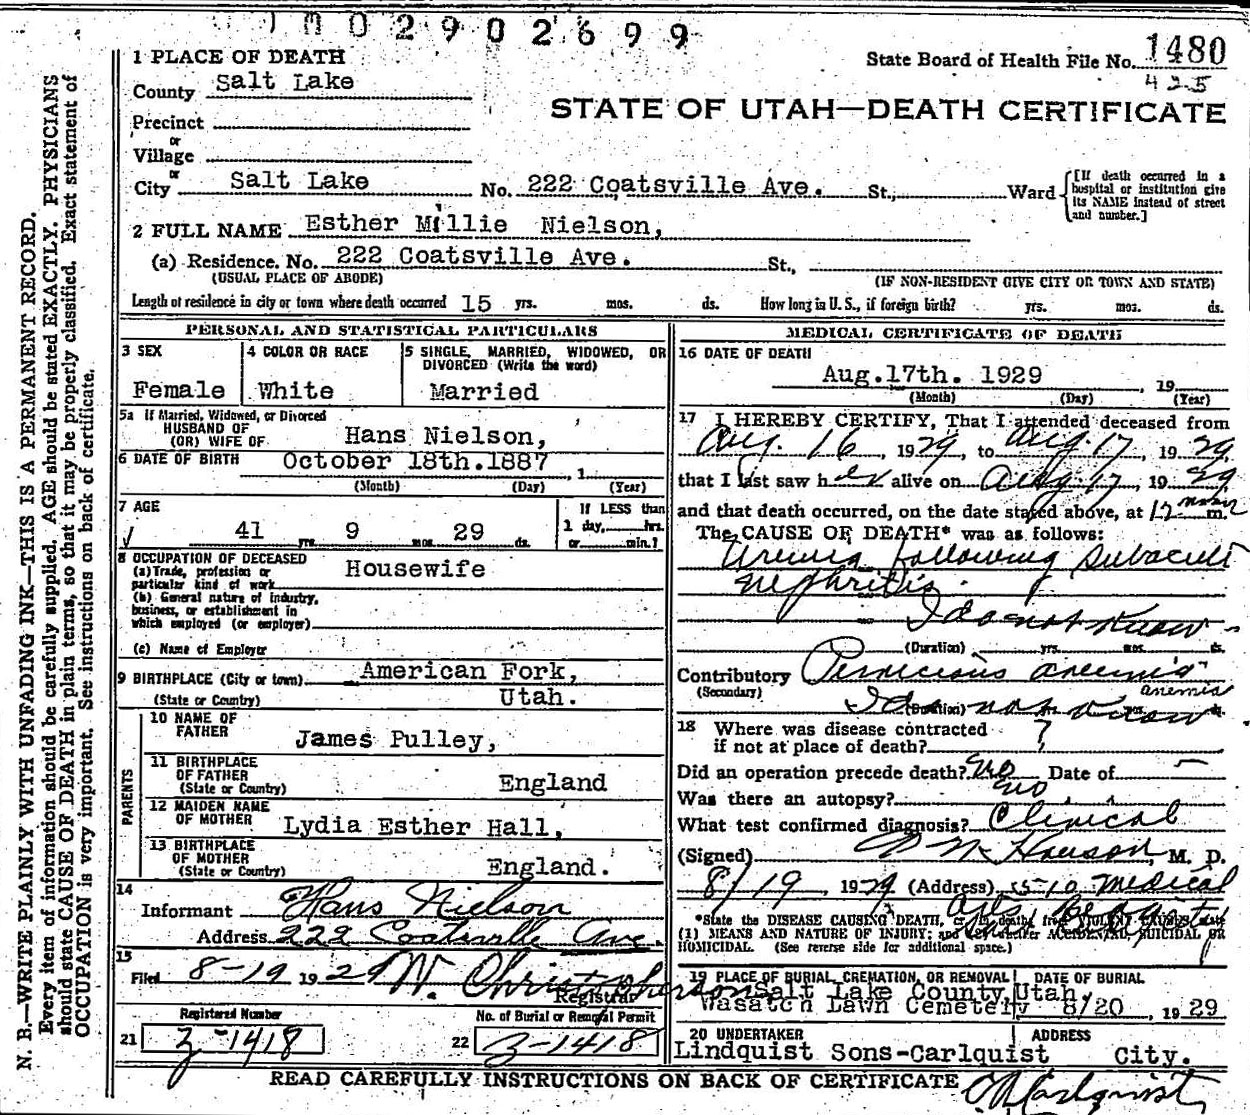 02902699
1 PLACE OF DEATH
State Board of Health File No. 1480
425
County Salt Lake
STATE OF UTAH—DEATH CERTIFICATE
Precinct
or
Village
or
City Salt Lake No. 222 Coatsville Ave. St., Ward
[If death occurred in a hospital or institution give its NAME instead of street and number.]
2 FULL NAME Esther Millie Nielson,
(a) Residence. No. 222 Coatsville Ave. St.,
(USUAL PLACE OF ABODE) (IF NON-RESIDENT GIVE CITY OR TOWN AND STATE)
Length of residence in city or town where death occurred 15 yrs. mos. ds. How long in U. S., if foreign birth? yrs. mos. ds.
PERSONAL AND STATISTICAL PARTICULARS
3 SEX
Female
4 COLOR OR RACE
White
5 SINGLE, MARRIED, WIDOWED, OR
DIVORCED (Write the word)
Married
5a If Married, Widowed, or Divorced
HUSBAND OF
(OR) WIFE OF Hans Nielson,
6 DATE OF BIRTH October 18th.1887, 1
(Month) (Day) (Year)
7 AGE
41 yrs. 9 mos. 29 ds.
If LESS than
1 day, hrs.
or min.?
8 OCCUPATION OF DECEASED
(a) Trade, profession or
particular kind of work Housewife
(b) General nature of industry,
business, or establishment in
which employed (or employer)
(c) Name of Employer
9 BIRTHPLACE (City or town) American Fork,
(State or Country) Utah.
PARENTS
10 NAME OF
FATHER James Pulley,
11 BIRTHPLACE
OF FATHER
(State or Country) England
12 MAIDEN NAME
OF MOTHER Lydia Esther Hall,
13 BIRTHPLACE
OF MOTHER
(State or Country) England.
14
Informant Hans Nielson
Address 222 Coatsville Ave.
15
Filed 8-19 1929 W. Christopherson
Registrar
Registered Number
21 3-1418
No. of Burial or Removal Permit
22 3-1418
MEDICAL CERTIFICATE OF DEATH
16 DATE OF DEATH
Aug.17th. 1929, 19
(Month) (Day) (Year)
17 I HEREBY CERTIFY, That I attended deceased from
Aug. 16, 1929, to Aug 17, 1929,
that I last saw her alive on Aug. 17, 1929
and that death occurred, on the date stated above, at 12 noon m.
The CAUSE OF DEATH* was as follows:
Uremia following subacute
nephritis.
I do not know
(Duration) yrs. mos. ds.
Contributory Pernicious anemia
(Secondary) anemia
I do not know
(Duration) yrs. ds.
18 Where was disease contracted
if not at place of death? ?
Did an operation precede death? no Date of —
Was there an autopsy? no
What test confirmed diagnosis? Clinical
(Signed) Hanson, M. D.
8/19, 1929 (Address) 510 Medical
*State the DISEASE CAUSING DEATH, or in deaths from VIOLENT CAUSES state
(1) MEANS AND NATURE OF INJURY; and (2) whether ACCIDENTAL, SUICIDAL OR
HOMICIDAL. (See reverse side for additional space.)
19 PLACE OF BURIAL, CREMATION, OR REMOVAL DATE OF BURIAL
Salt Lake County, Utah.
Wasatch Lawn Cemetery 8/20, 1929
20 UNDERTAKER ADDRESS
Lindquist Sons-Carlquist City.
READ CAREFULLY INSTRUCTIONS ON BACK OF CERTIFICATE
Carlquist
N. B.—WRITE PLAINLY WITH UNFADING INK—THIS IS A PERMANENT RECORD.
Every item of information should be carefully supplied. AGE should be stated EXACTLY. PHYSICIANS
should state CAUSE OF DEATH in plain terms, so that it may be properly classified. Exact statement of
OCCUPATION is very important. See instructions on back of certificate.